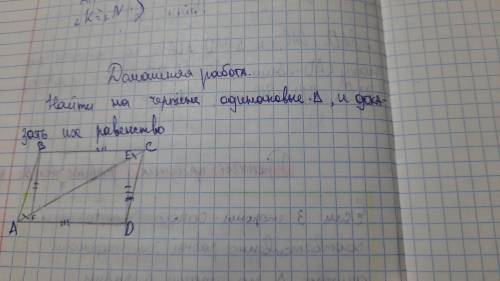 ∠K = ∠N
Домашняя работа.
Найти на чертеже одинаковые Δ, и дока-
зать их равенство
B C
E
A F D